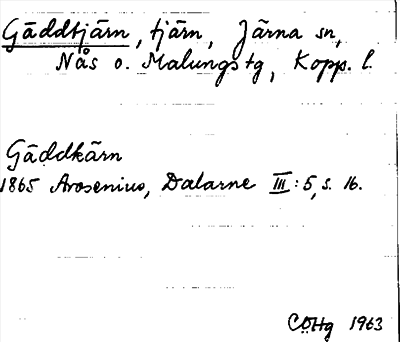 Gäddtjärn, tjärn, Järna sn,
Nås o. Malungs tg, Kopp. l.
Gäddkärn
1865 Arosenius, Dalarne III:5, s. 16.
CÖHg 1963